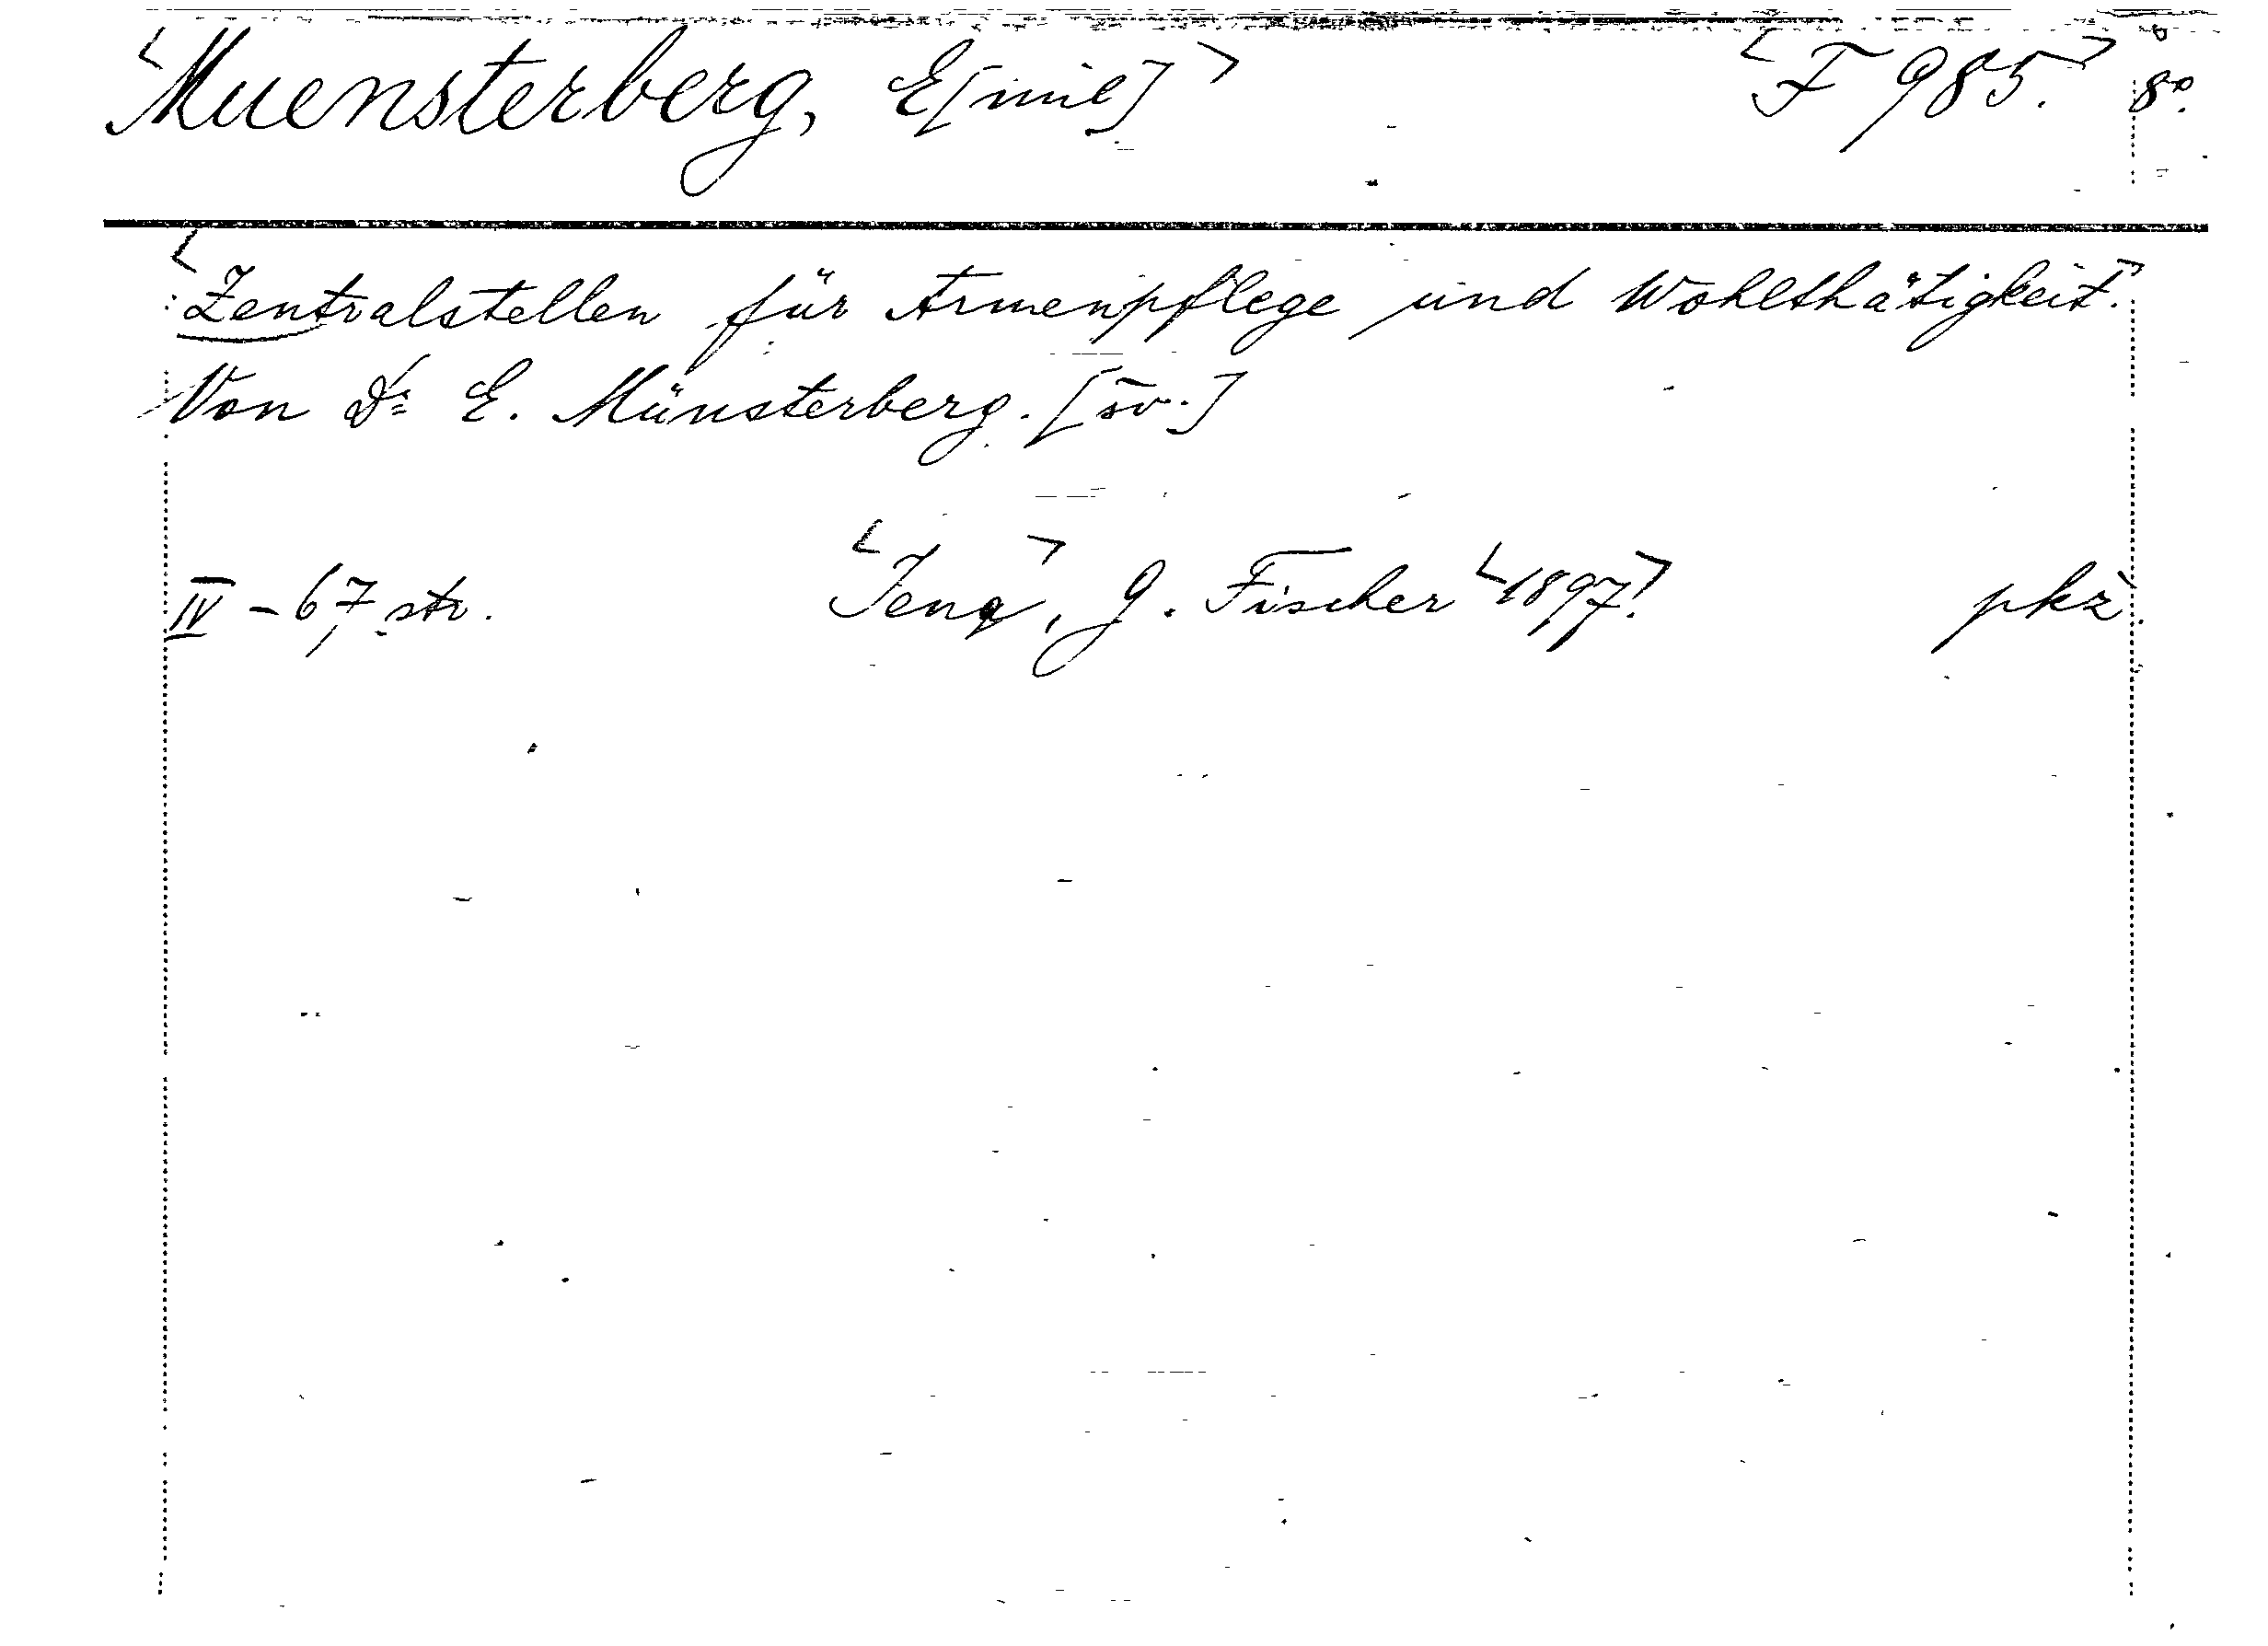 <Muensterberg, E[mil]> <F 985.> 8°.
<Zentralstellen für Armenpflege und Wohlthätigkeit.>
Von Dr E. Münsterberg. [sv.]
IV - 67 str. <Jena>, G. Fischer <1897.> pkž.